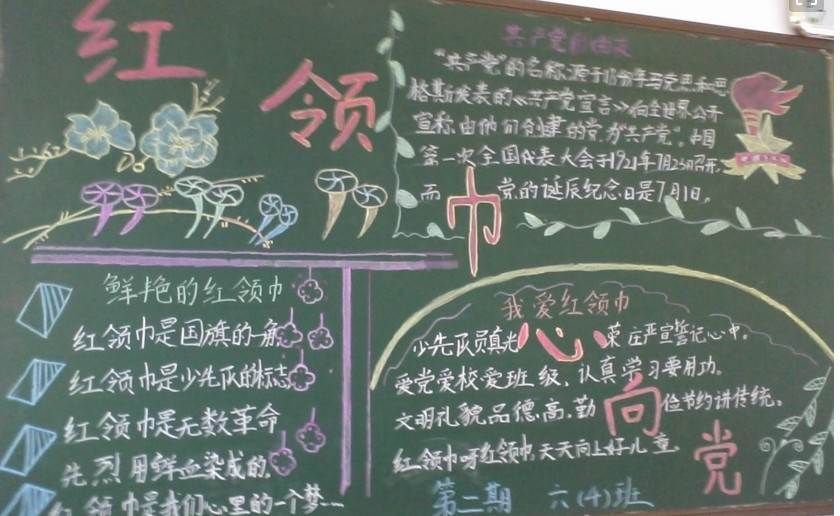 红
领
巾
心
向
党
共产党的由来
“共产党”的名称,源于1848年马克思和恩
格斯发表的《共产党宣言》向全世界公开
宣称,由他们创建的党为“共产党”。中国
第一次全国代表大会于1921年7月23日召开,
而 党的诞辰纪念日是7月1日。
鲜艳的红领巾
红领巾是国旗的一角
红领巾是少先队的标志
红领巾是无数革命
先烈用鲜血染成的,
红领巾是我们心里的一个梦...
我爱红领巾
少先队员真光 荣庄严宣誓记心中。
爱党爱校爱班级、认真学习要用功。
文明礼貌品德高,勤 位节约讲传统。
红领巾呀红领巾,天天向上好儿童。
第二期 六(4)班